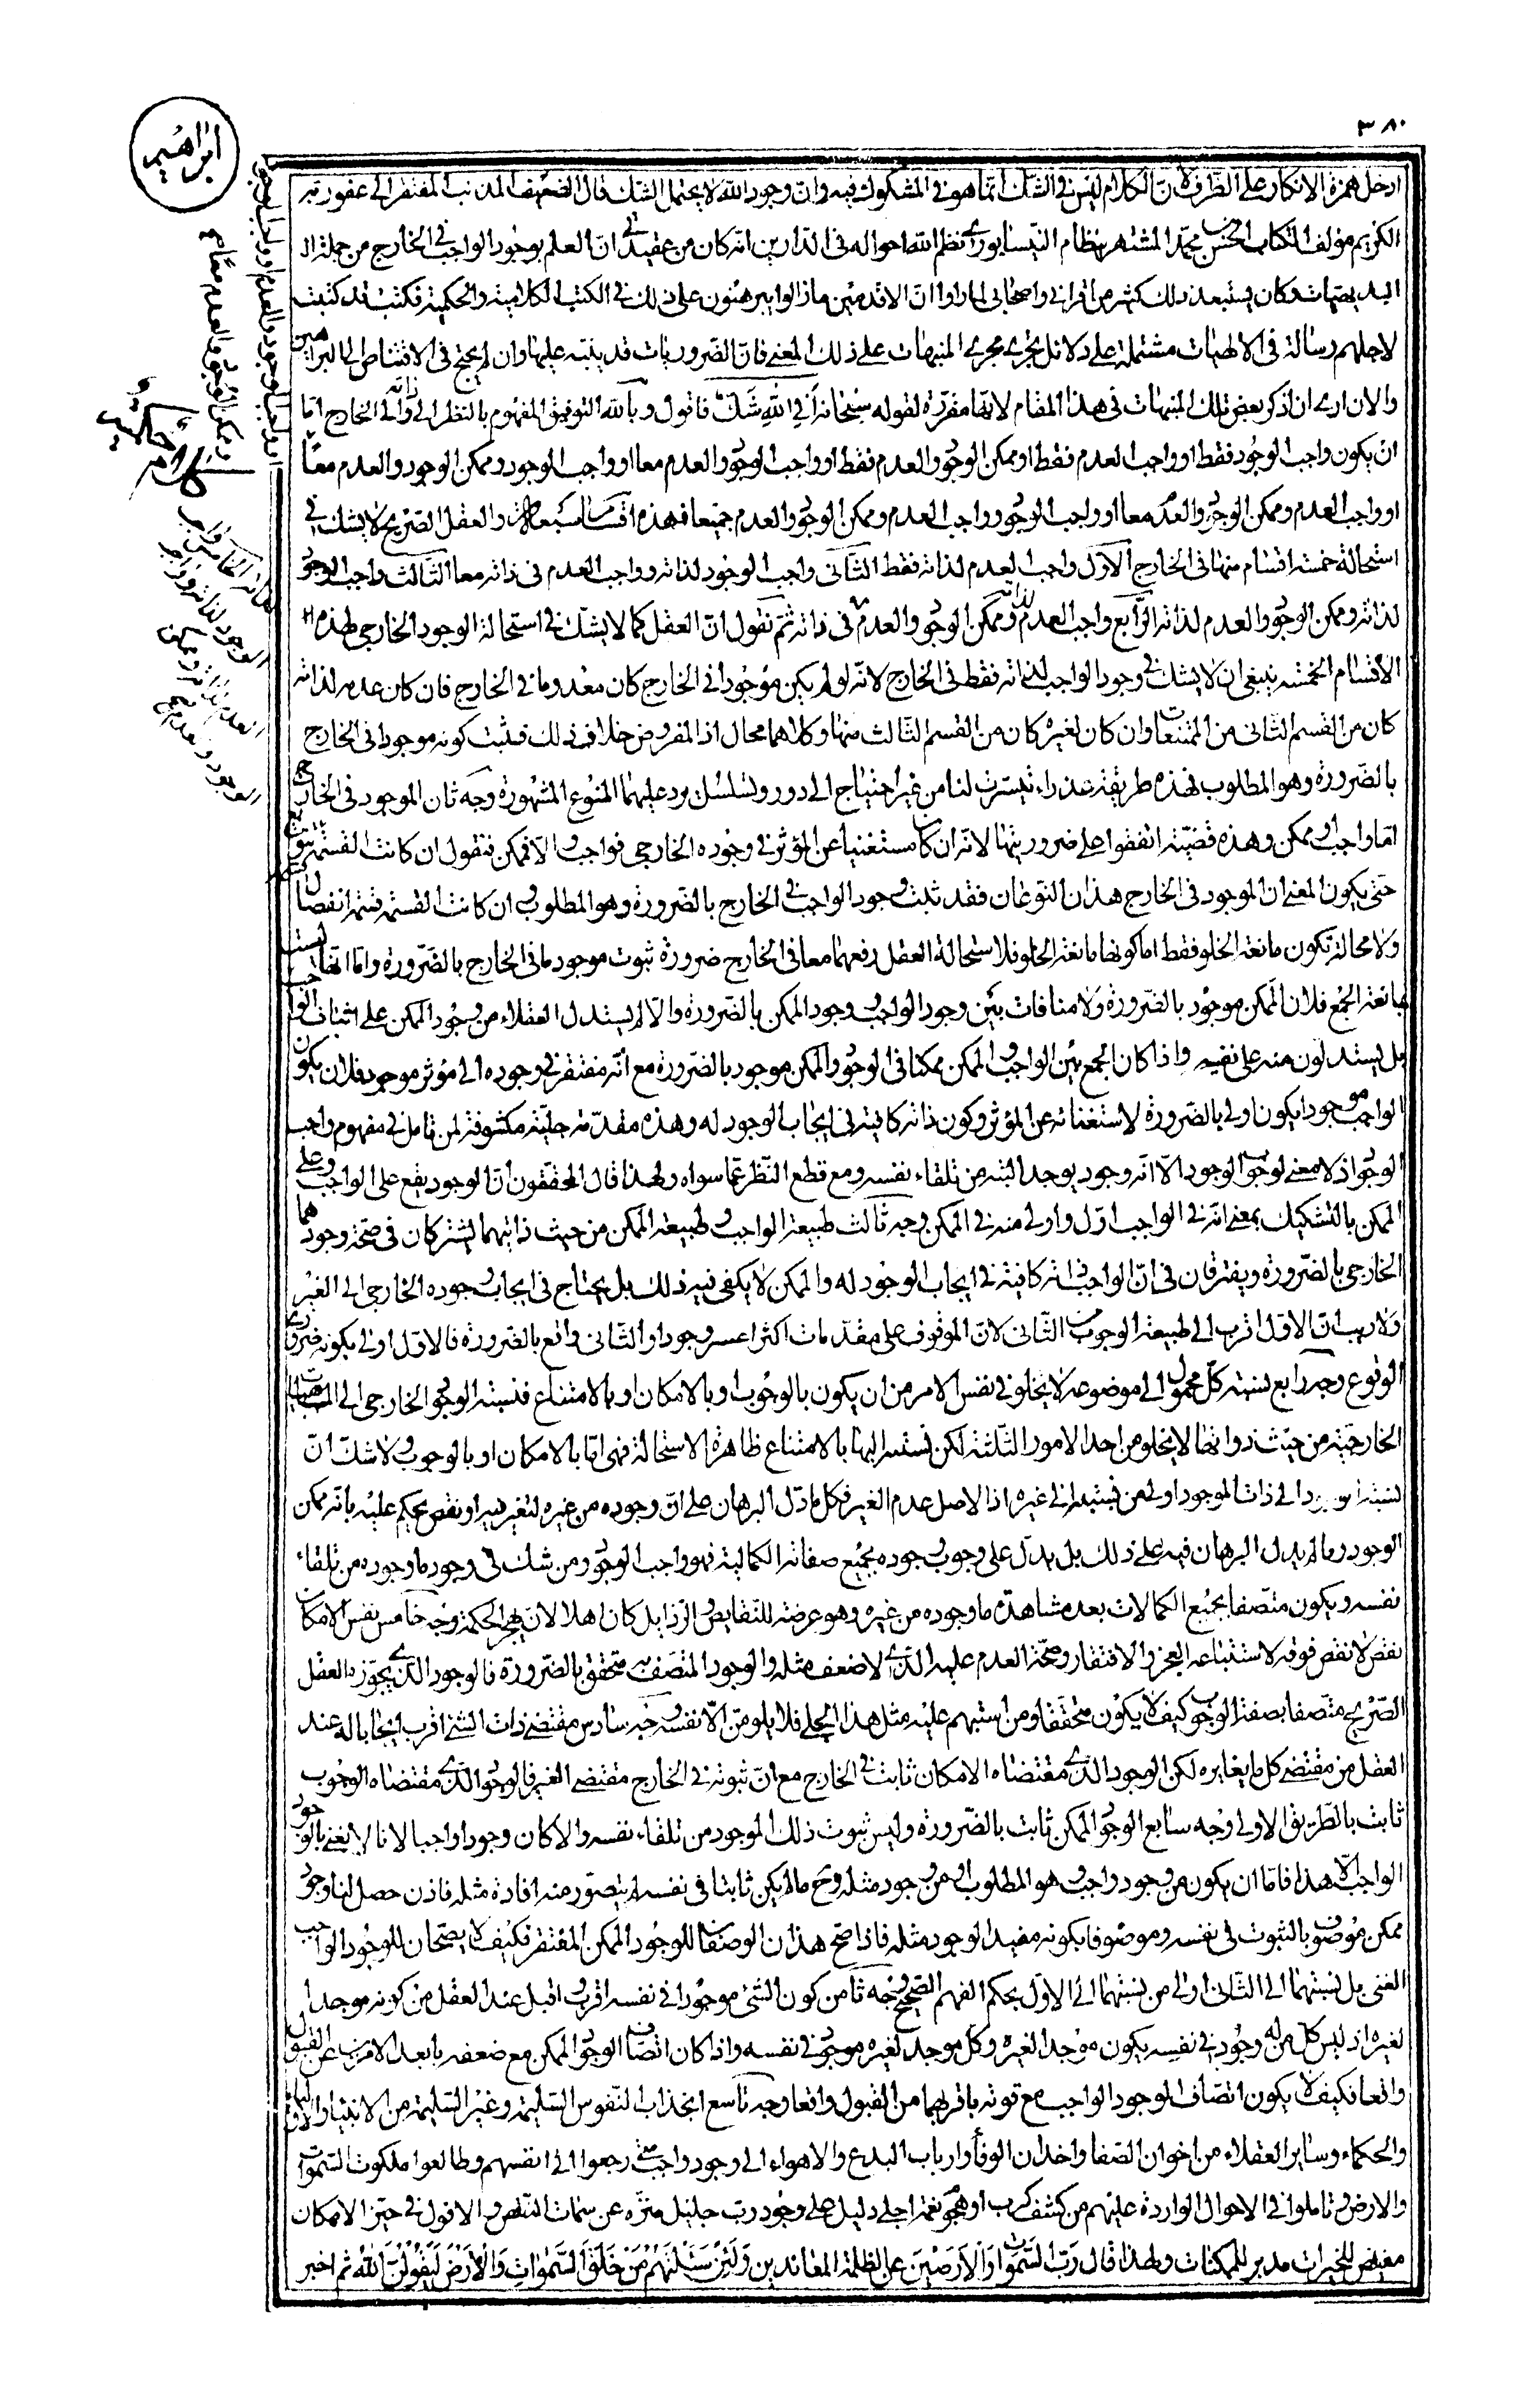 ٣٨٠
ابراهيم
ادخل همزة الانكار على الظرف لان الكلام ليس فى الشك انما هو فى المشكوك فيه وان وجود الله لا يحتمل الشك قال الضعيف المذنب المفتقر الى عفو ربه
الكريم مؤلف الكتاب الحسن بن محمد المشتهر بنظام النيسابورى نظم الله احواله فى الدارين انه كان من عقيدتى ان العلم بوجود الواجب فى الخارج من جملة ال
البديهيات وكان يستبعد ذلك كثير من اقرانى واصحابى لما راوا ان الاقدمين مازالوا يبرهنون على ذلك فى الكتب الكلامية والحكمية فكنت قد كتبت
لاجلهم رسالة فى الالهيات مشتملة على دلائل تجرى مجرى المنبهات على ذلك المعنى فان الضروريات قد ينبه عليها وان لم يحتج فى الاقتناص الى البراهين
والان ارى ان اذكر بعض تلك المنبهات فى هذا المقام لانها مقررة لقوله سبحانه أَفِى اللهِ شَكٌّ فاقول وبالله التوفيق المفهوم بالنظر الى ذاته والى الخارج اما
ان يكون واجب الوجود فقط او واجب العدم فقط او ممكن الوجود والعدم فقط او واجب الوجود والعدم معا او واجب الوجود وممكن الوجود والعدم معا
او واجب العدم وممكن الوجود والعدم معا او واجب الوجود وواجب العدم وممكن الوجود والعدم جميعا فهذه اقسام سبعة والعقل الصريح لا يشك فى
استحالة خمسة اقسام منها فى الخارج الاول واجب العدم لذاته فقط الثانى واجب الوجود لذاته وواجب العدم فى ذاته معا الثالث واجب الوجود
لذاته وممكن الوجود والعدم لذاته الرابع واجب العدم لذاته وممكن الوجود والعدم فى ذاته ثم نقول ان العقل كما لا يشك فى استحالة الوجود الخارجى لهذه
الاقسام الخمسة ينبغى ان لا يشك فى وجود الواجب لذاته فقط فى الخارج لانه لو لم يكن موجودا فى الخارج كان معدوما فى الخارج فان كان عدمه لذاته
كان من القسم الثانى من الممتنعات وان كان لغيره كان من القسم الثالث منها وكلاهما محال اذ المفروض خلاف ذلك فثبت كونه موجودا فى الخارج
بالضرورة وهو المطلوب فهذه طريقة عذراء تيسرت لنا من غير احتياج الى دور وتسلسل يرد عليهما المنوع المشهورة وجه ثان الموجود فى الخارج
اما واجب او ممكن وهذه قضية اتفقوا على ضروريتها لانه ان كان مستغنيا عن المؤثر فى وجوده الخارجى فواجب والا فممكن فنقول ان كانت القسمة قسمة تنويع
حتى يكون المعنى ان الموجود فى الخارج هذان النوعان فقد ثبت وجود الواجب فى الخارج بالضرورة وهو المطلوب وان كانت القسمة قسمة انفصال
ولا محالة تكون مانعة الخلو فقط اما كونها مانعة الخلو فلاستحالة العقل رفعهما معا فى الخارج ضرورة ثبوت موجود ما فى الخارج بالضرورة واما انها ليست
مانعة الجمع فلان الممكن موجود بالضرورة ولا منافات بين وجود الواجب ووجود الممكن بالضرورة والا لم يستدل العقلاء من وجود الممكن على اثبات الواجب
بل يستدلون منه على نفيه واذا كان الجمع بين الواجب والممكن ممكنا فى الوجود والممكن موجود بالضرورة مع انه مفتقر فى وجوده الى مؤثر موجد فلان يكون
الواجب موجودا يكون اولى بالضرورة لاستغنائه عن المؤثر وكون ذاته كافية فى ايجاب الوجود له وهذه مقدمة جلية مكشوفة لمن تامل فى مفهوم واجب
الوجود اذ لا معنى لوجوب الوجود الا انه وجود يوجد البتة من تلقاء نفسه ومع قطع النظر عما سواه ولهذا قال المحققون ان الوجود يقع على الواجب وعلى
الممكن بالتشكيك بمعنى انه فى الواجب اول واولى منه فى الممكن وجه ثالث طبيعة الواجب وطبيعة الممكن من حيث ذاتيهما يشتركان فى صحة وجودهما
الخارجى بالضرورة ويفترقان فى ان الواجب ذاته كافية فى ايجاب الوجود له والممكن لا يكفى فيه ذلك بل يحتاج فى ايجاب وجوده الخارجى الى الغير
ولا ريب ان الاول اقرب الى طبيعة الوجود من الثانى لان الموقوف على مقدمات اكثر اعسر وجودا والثانى واقع بالضرورة فالاول اولى بكونه ضرورى
الوقوع وجه رابع نسبة كل محمول الى موضوعه لا يخلو فى نفس الامر من ان يكون بالوجوب او بالامكان او بالامتناع فنسبة الوجود الخارجى الى الماهيات
الخارجية من حيث ذواتها لا يخلو من احد الامور الثلثة لكن نسبته اليها بالامتناع ظاهرة الاستحالة فهى اما بالامكان او بالوجوب ولا شك ان
نسبة الوجود الى ذات الموجود اولى من نسبته الى غيره اذ الاصل عدم الغير فكل ما دل البرهان على ان وجوده من غيره لتغير فيه او نقص يحكم عليه بانه ممكن
الوجود وما لم يدل البرهان فيه على ذلك بل يدل على وجوب وجوده بجميع صفاته الكمالية فهو واجب الوجود ومن شك فى وجود ما وجوده من تلقاء
نفسه ويكون متصفا بجميع الكمالات بعد مشاهدة ما وجوده من غيره وهو عرضة للنقايص والرذايل كان اهلا لان يهجر الحكمة وجه خامس نفس الامكان
نقص لا نقص فوقه لاستتباعه العجز والافتقار وصحة العدم عليه الذى لا ضعف مثله والوجود المتصف به متحقق بالضرورة فالوجود الذى يجوزه العقل
الصريح متصفا بصفة الوجوب كيف لا يكون متحققا ومن استبهم عليه مثل هذا الجلى فلا يلومن الا نفسه وجه سادس مقتضى ذات الشئ اقرب ايجابا له عند
العقل من مقتضى كل ما يغايره لكن الوجود الذى مقتضاه الامكان ثابت فى الخارج مع ان ثبوته فى الخارج مقتضى الغير فالوجود الذى مقتضاه الوجوب
ثابت بالطريق الاولى وجه سابع الوجود الممكن ثابت بالضرورة وليس ثبوت ذلك الموجود من تلقاء نفسه والا كان وجودا واجبا لانا لا نعنى بالوجود
الواجب الا هذا فاما ان يكون من وجود واجب وهو المطلوب او من وجود مثله وح ما لم يكن ثابتا فى نفسه لم يتصور منه افادة مثله فاذن حصل لنا وجود
ممكن موصوف بالثبوت فى نفسه وموصوفا بكونه مفيد الوجود مثله فاذا صح هذان الوصفان للوجود الممكن المفتقر فكيف لا يصحان للوجود الواجب
الغنى بل نسبتهما الى الثانى اولى من نسبتهما الى الاول بحكم الفهم الصحيح وجه ثامن كون الشئ موجودا فى نفسه اقرب واقبل عند العقل من كونه موجدا
لغيره اذ ليس كل من له وجود فى نفسه يكون موجدا لغيره وكل موجد لغيره موجود فى نفسه واذا كان اتصاف الوجود الممكن مع ضعفه بابعد الامرين عن القبول
واقعا فكيف لا يكون اتصاف الوجود الواجب مع قوته باقربهما من القبول واقعا وجه تاسع انجذاب النفوس السليمة وغير السليمة من الانبياء والاولياء
والحكماء وساير العقلاء من اخوان الصفا واخدان الوفا وارباب البدع والاهواء الى وجود واجب متى رجعوا الى انفسهم وطالعوا ملكوت السموات
والارض وتاملوا فى الاحوال الواردة عليهم من كشف كرب او هجوم نعمة اجلى دليل على وجود رب جليل منزه عن سمات النقص والافول فى حيز الامكان
مفيض للخيرات مدبر للممكنات ولهذا قال رب السموات والارضين عن الظلمة المعاندين وَلَئِنْ سَئَلْتَهُمْ مَنْ خَلَقَ السَّمٰوَاتِ وَالْاَرْضَ لَيَقُولُنَّ اللهُ ثم اخبر